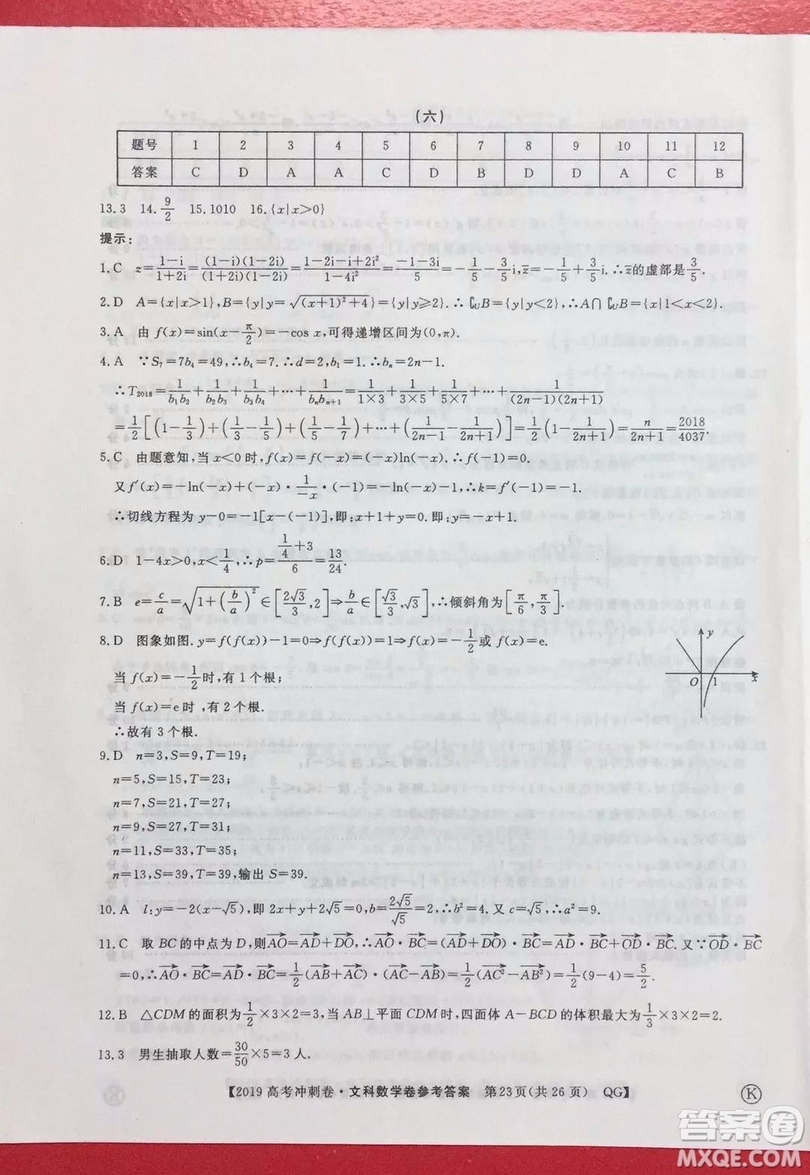 （六）
题号 1 2 3 4 5 6 7 8 9 10 11 12
答案 C D A A C D B D D A C B
13.3 14.9/2 15.1010 16.{x|x>0}
提示：
1.C z=(1-i)/(1+2i)=(1-i)(1-2i)/(1+2i)(1-2i)=(1-2i-i+2i²)/(1-4i²)=(-1-3i)/5=-1/5-3/5i,z̅=-1/5+3/5i.∴z̅的虚部是3/5.
2.D A={x|x>1},B={y|y=√((x+1)²+4)}={y|y≥2}.∴∁UB={y|y<2},∴A∩∁UB={x|1<x<2}.
3.A 由f(x)=sin(x-π/2)=-cos x,可得递增区间为(0,π).
4.A ∵S₇=7b₄=49,∴b₄=7.∴d=2,b₁=1.∴bₙ=2n-1.
∴T₂₀₁₈=1/(b₁b₂)+1/(b₂b₃)+1/(b₃b₄)+…+1/(bₙbₙ₊₁)=1/(1×3)+1/(3×5)+1/(5×7)+…+1/((2n-1)(2n+1))
=1/2[(1-1/3)+(1/3-1/5)+(1/5-1/7)+…+(1/(2n-1)-1/(2n+1))]=1/2(1-1/(2n+1))=n/(2n+1)=2018/4037.
5.C 由题意知，当x<0时,f(x)=f(-x)=(-x)ln(-x).∴f(-1)=0.
又f′(x)=-ln(-x)+(-x)·1/(-x)·(-1)=-ln(-x)-1.∴k=f′(-1)=-1.
∴切线方程为y-0=-1[x-(-1)],即:x+1+y=0.即:y=-x+1.
6.D 1-4x>0,x<1/4,∴p=(1/4+3)/6=13/24.
7.B e=c/a=√(1+(b/a)²)∈[2√3/3,2]⇒b/a∈[√3/3,√3],∴倾斜角为[π/6,π/3].
8.D 图象如图.y=f(f(x))-1=0⇒f(f(x))=1⇒f(x)=-1/2或f(x)=e.
当f(x)=-1/2时,有1个根;
当f(x)=e时,有2个根.
∴故有3个根.
y
O 1 x
9.D n=3,S=9,T=19;
n=5,S=15,T=23;
n=7,S=21,T=27;
n=9,S=27,T=31;
n=11,S=33,T=35;
n=13,S=39,T=39,输出S=39.
10.A l:y=-2(x-√5),即2x+y+2√5=0,b=2√5/√5=2,∴b²=4.又c=√5,∴a²=9.
11.C 取BC的中点为D,则AO→=AD→+DO→,∴AO→·BC→=(AD→+DO→)·BC→=AD→·BC→+DO→·BC→.又∵OD→·BC→
=0,∴AO→·BC→=AD→·BC→=1/2(AB→+AC→)·(AC→-AB→)=1/2(AC→²-AB→²)=1/2(9-4)=5/2.
12.B △CDM的面积为1/2×3×2=3,当AB⊥平面CDM时,四面体A-BCD的体积最大为1/3×3×2=2.
13.3 男生抽取人数=30/50×5=3人.
【2019高考冲刺卷·文科数学卷参考答案 第23页(共26页) QG】
Ⓚ
答案圈
MXQE.COM